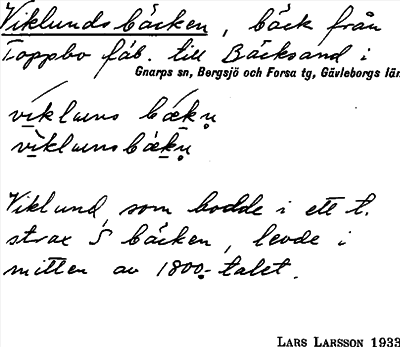 Viklundsbäcken, bäck från
Toppbo fáb. till Bäcksand i
Gnarps sn, Bergsjö och Forsa tg, Gävleborgs län
vikluns bækn̥
viklunsbækn̥
Viklund som bodde i ett t.
strax S bäcken, levde i
mitten av 1800-talet.
LARS LARSSON 1933